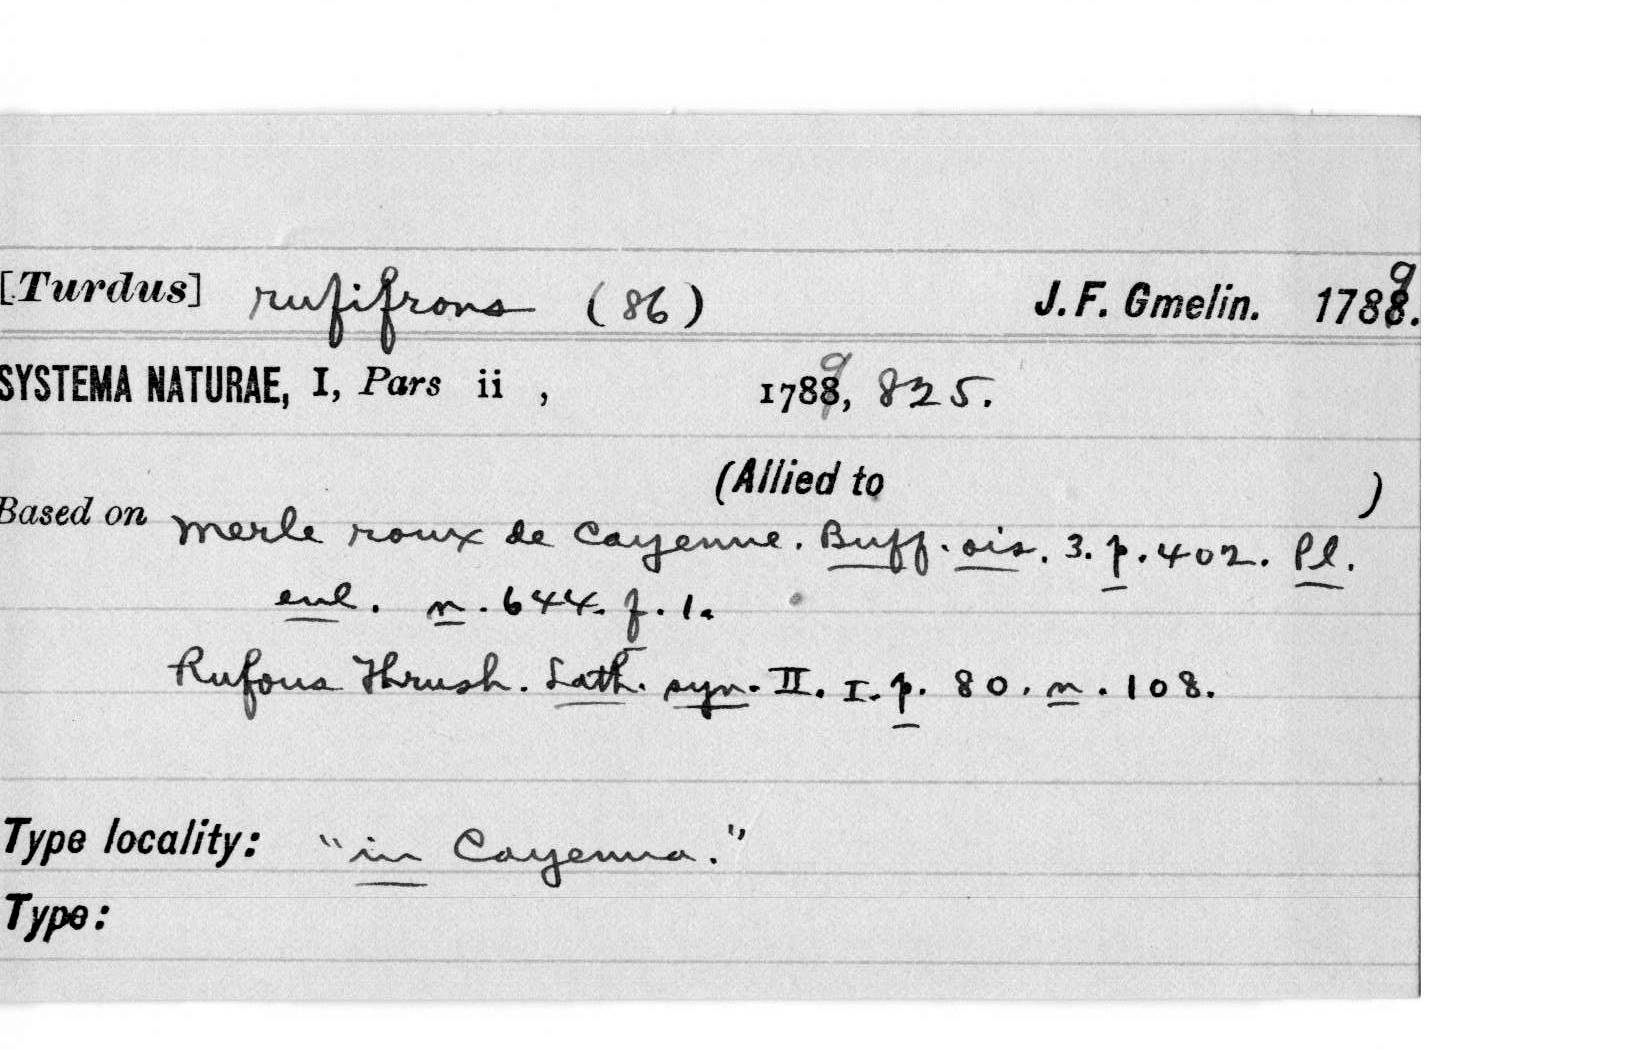 [Turdus] rufifrons (86) J. F. Gmelin. 1789.
SYSTEMA NATURAE, I, Pars ii , 1789, 825.
(Allied to )
Based on Merle roux de Cayenne. Buff. ois. 3. p. 402. Pl.
enl. n. 644. f. 1.
Rufous Thrush. Lath. syn. II. I. p. 80. n. 108.
Type locality: "in Cayenna."
Type: